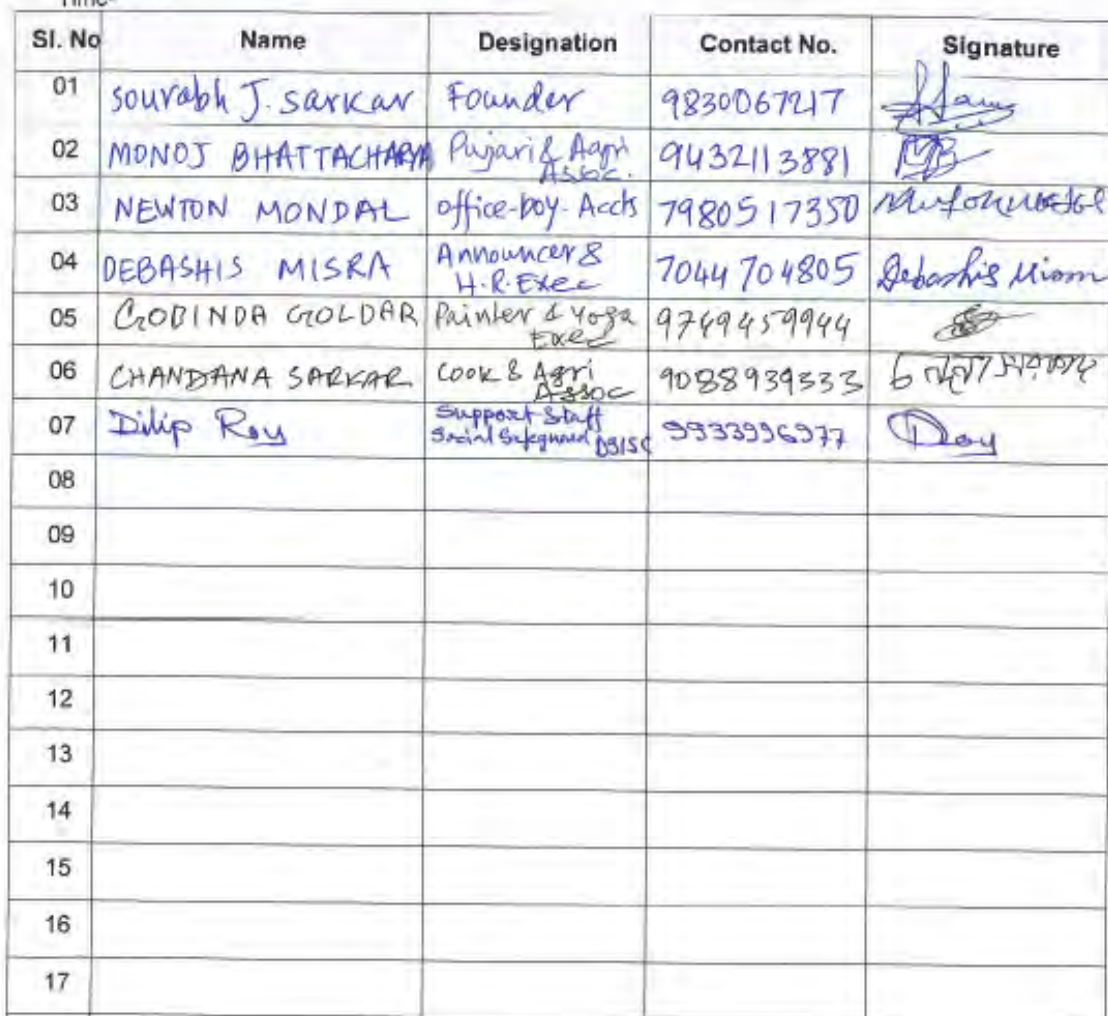 Time-
Sl. No Name Designation Contact No. Signature
01 Sourabh J. Sarkar Founder 9830067217
02 MONOJ BHATTACHARYA Pujari & Agri
Assoc. 9432113881 MB
03 NEWTON MONDAL office-boy-Accts 7980517350
04 DEBASHIS MISRA Announcer &
H.R.Exec 7044704805 Debashis Misra
05 GOBINDA GOLDAR Painter & Yoga
Exec 9749459944
06 CHANDANA SARKAR Cook & Agri
Assoc 9088939333
07 Dilip Roy Support Staff
Social Safeguard DSISC 9933996977 DRoy
08
09
10
11
12
13
14
15
16
17